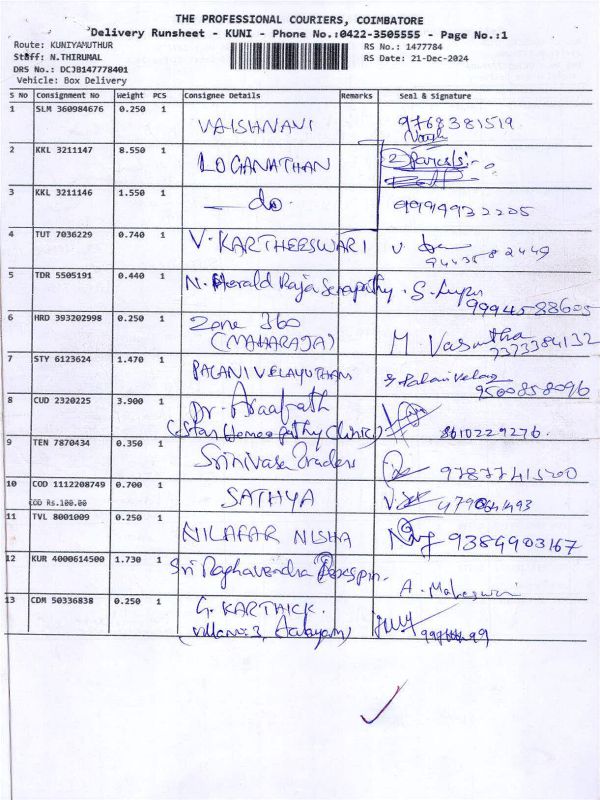 THE PROFESSIONAL COURIERS, COIMBATORE
Delivery Runsheet - KUNI - Phone No.:0422-3505555 - Page No.:1
Route: KUNIYAMUTHUR RS No.: 1477784
Staff: N.THIRUMAL RS Date: 21-Dec-2024
DRS No.: DCJB147778401
Vehicle: Box Delivery
S No Consignment No Weight PCS Consignee Details Remarks Seal & Signature
1 SLM 360984676 0.250 1 VAISHNAVI 9768381519
2 KKL 3211147 8.550 1 LOGANATHAN 2 Parcels
3 KKL 3211146 1.550 1 — do. 99949932205
4 TUT 7036229 0.740 1 V. KARTHEESWARI V.
5 TDR 5505191 0.440 1 N. Herald Raja Senapathy. S. 9994588605
6 HRD 393202998 0.250 1 Zone 360 M. Vasantha
(MAHARAJA) 7373384132
7 STY 6123624 1.470 1 PALANI VELAYUTHAM Palani Velay
9500858096
8 CUD 2320225 3.900 1 Dr. Araafath
(Star Homeopathy Clinic) 8610229276.
9 TEN 7870434 0.350 1 Srinivasa Traders
10 COD 1112208749 0.700 1 SATHYA
COD Rs.100.00
11 TVL 8001009 0.250 1 NILAFAR NISHA 9384903167
12 KUR 4000614500 1.730 1 Sri Raghavendra
A. Maheswari
13 CDM 50336838 0.250 1 G. KARTHICK.